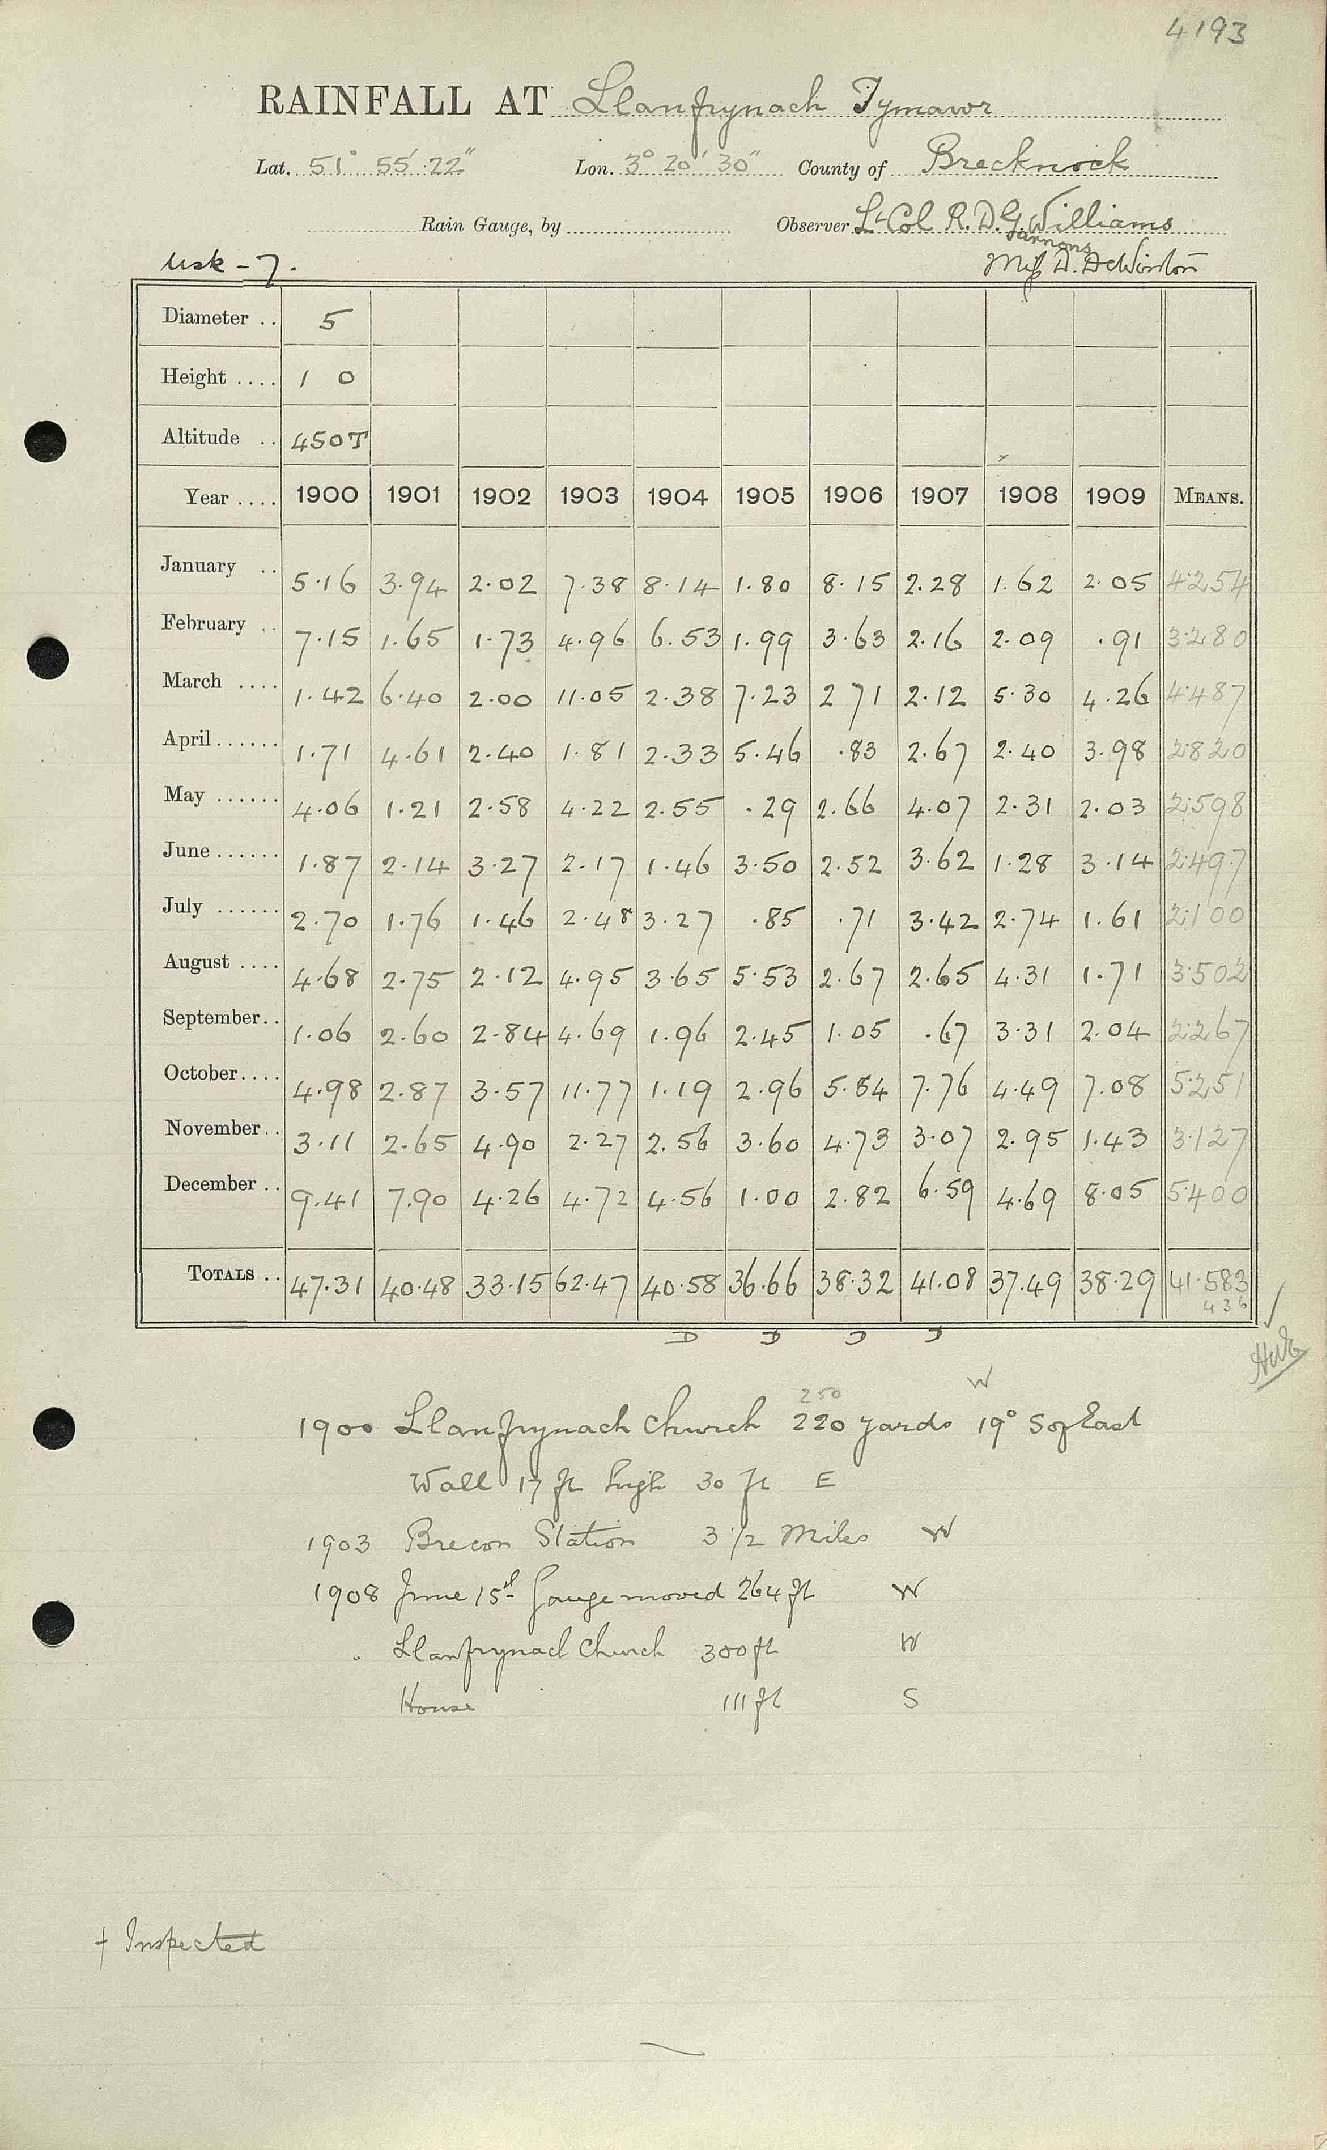 4193
RAINFALL AT Llanfrynach Tymawr
Lat. 51° 55' 22" Lon. 3° 20' 30" County of Brecknock
Rain Gauge, by Observer Lt Col R. D. G. Williams
Garnons
Usk - 7. Miss D. DeWinton
Diameter .. 5
Height .... 1 0
Altitude .. 450T
Year .... 1900 1901 1902 1903 1904 1905 1906 1907 1908 1909 MEANS.
January .. 5.16 3.94 2.02 7.38 8.14 1.80 8.15 2.28 1.62 2.05 4.254
February .. 7.15 1.65 1.73 4.96 6.53 1.99 3.63 2.16 2.09 .91 3.280
March .... 1.42 6.40 2.00 11.05 2.38 7.23 2 71 2.12 5.30 4.26 4.487
April ...... 1.71 4.61 2.40 1.81 2.33 5.46 .83 2.67 2.40 3.98 2.820
May ...... 4.06 1.21 2.58 4.22 2.55 .29 2.66 4.07 2.31 2.03 2.598
June ...... 1.87 2.14 3.27 2.17 1.46 3.50 2.52 3.62 1.28 3.14 2.497
July ...... 2.70 1.76 1.46 2.48 3.27 .85 .71 3.42 2.74 1.61 2.100
August .... 4.68 2.75 2.12 4.95 3.65 5.53 2.67 2.65 4.31 1.71 3.502
September.. 1.06 2.60 2.84 4.69 1.96 2.45 1.05 .67 3.31 2.04 2.267
October.... 4.98 2.87 3.57 11.77 1.19 2.96 5.84 7.76 4.49 7.08 5.251
November.. 3.11 2.65 4.90 2.27 2.56 3.60 4.73 3.07 2.95 1.43 3.127
December .. 9.41 7.90 4.26 4.72 4.56 1.00 2.82 6.59 4.69 8.05 5.400
TOTALS .. 47.31 40.48 33.15 62.47 40.58 36.66 38.32 41.08 37.49 38.29 41.583
436
D D D D
250 W
1900 Llanfrynach Church 220 yards 19° S of East
Wall 17 ft high 30 ft E
1903 Brecon Station 3 1/2 Miles W
1908 June 15th Gauge moved 264 ft W
" Llanfrynach Church 300 ft W
House 111 ft S
† Inspected